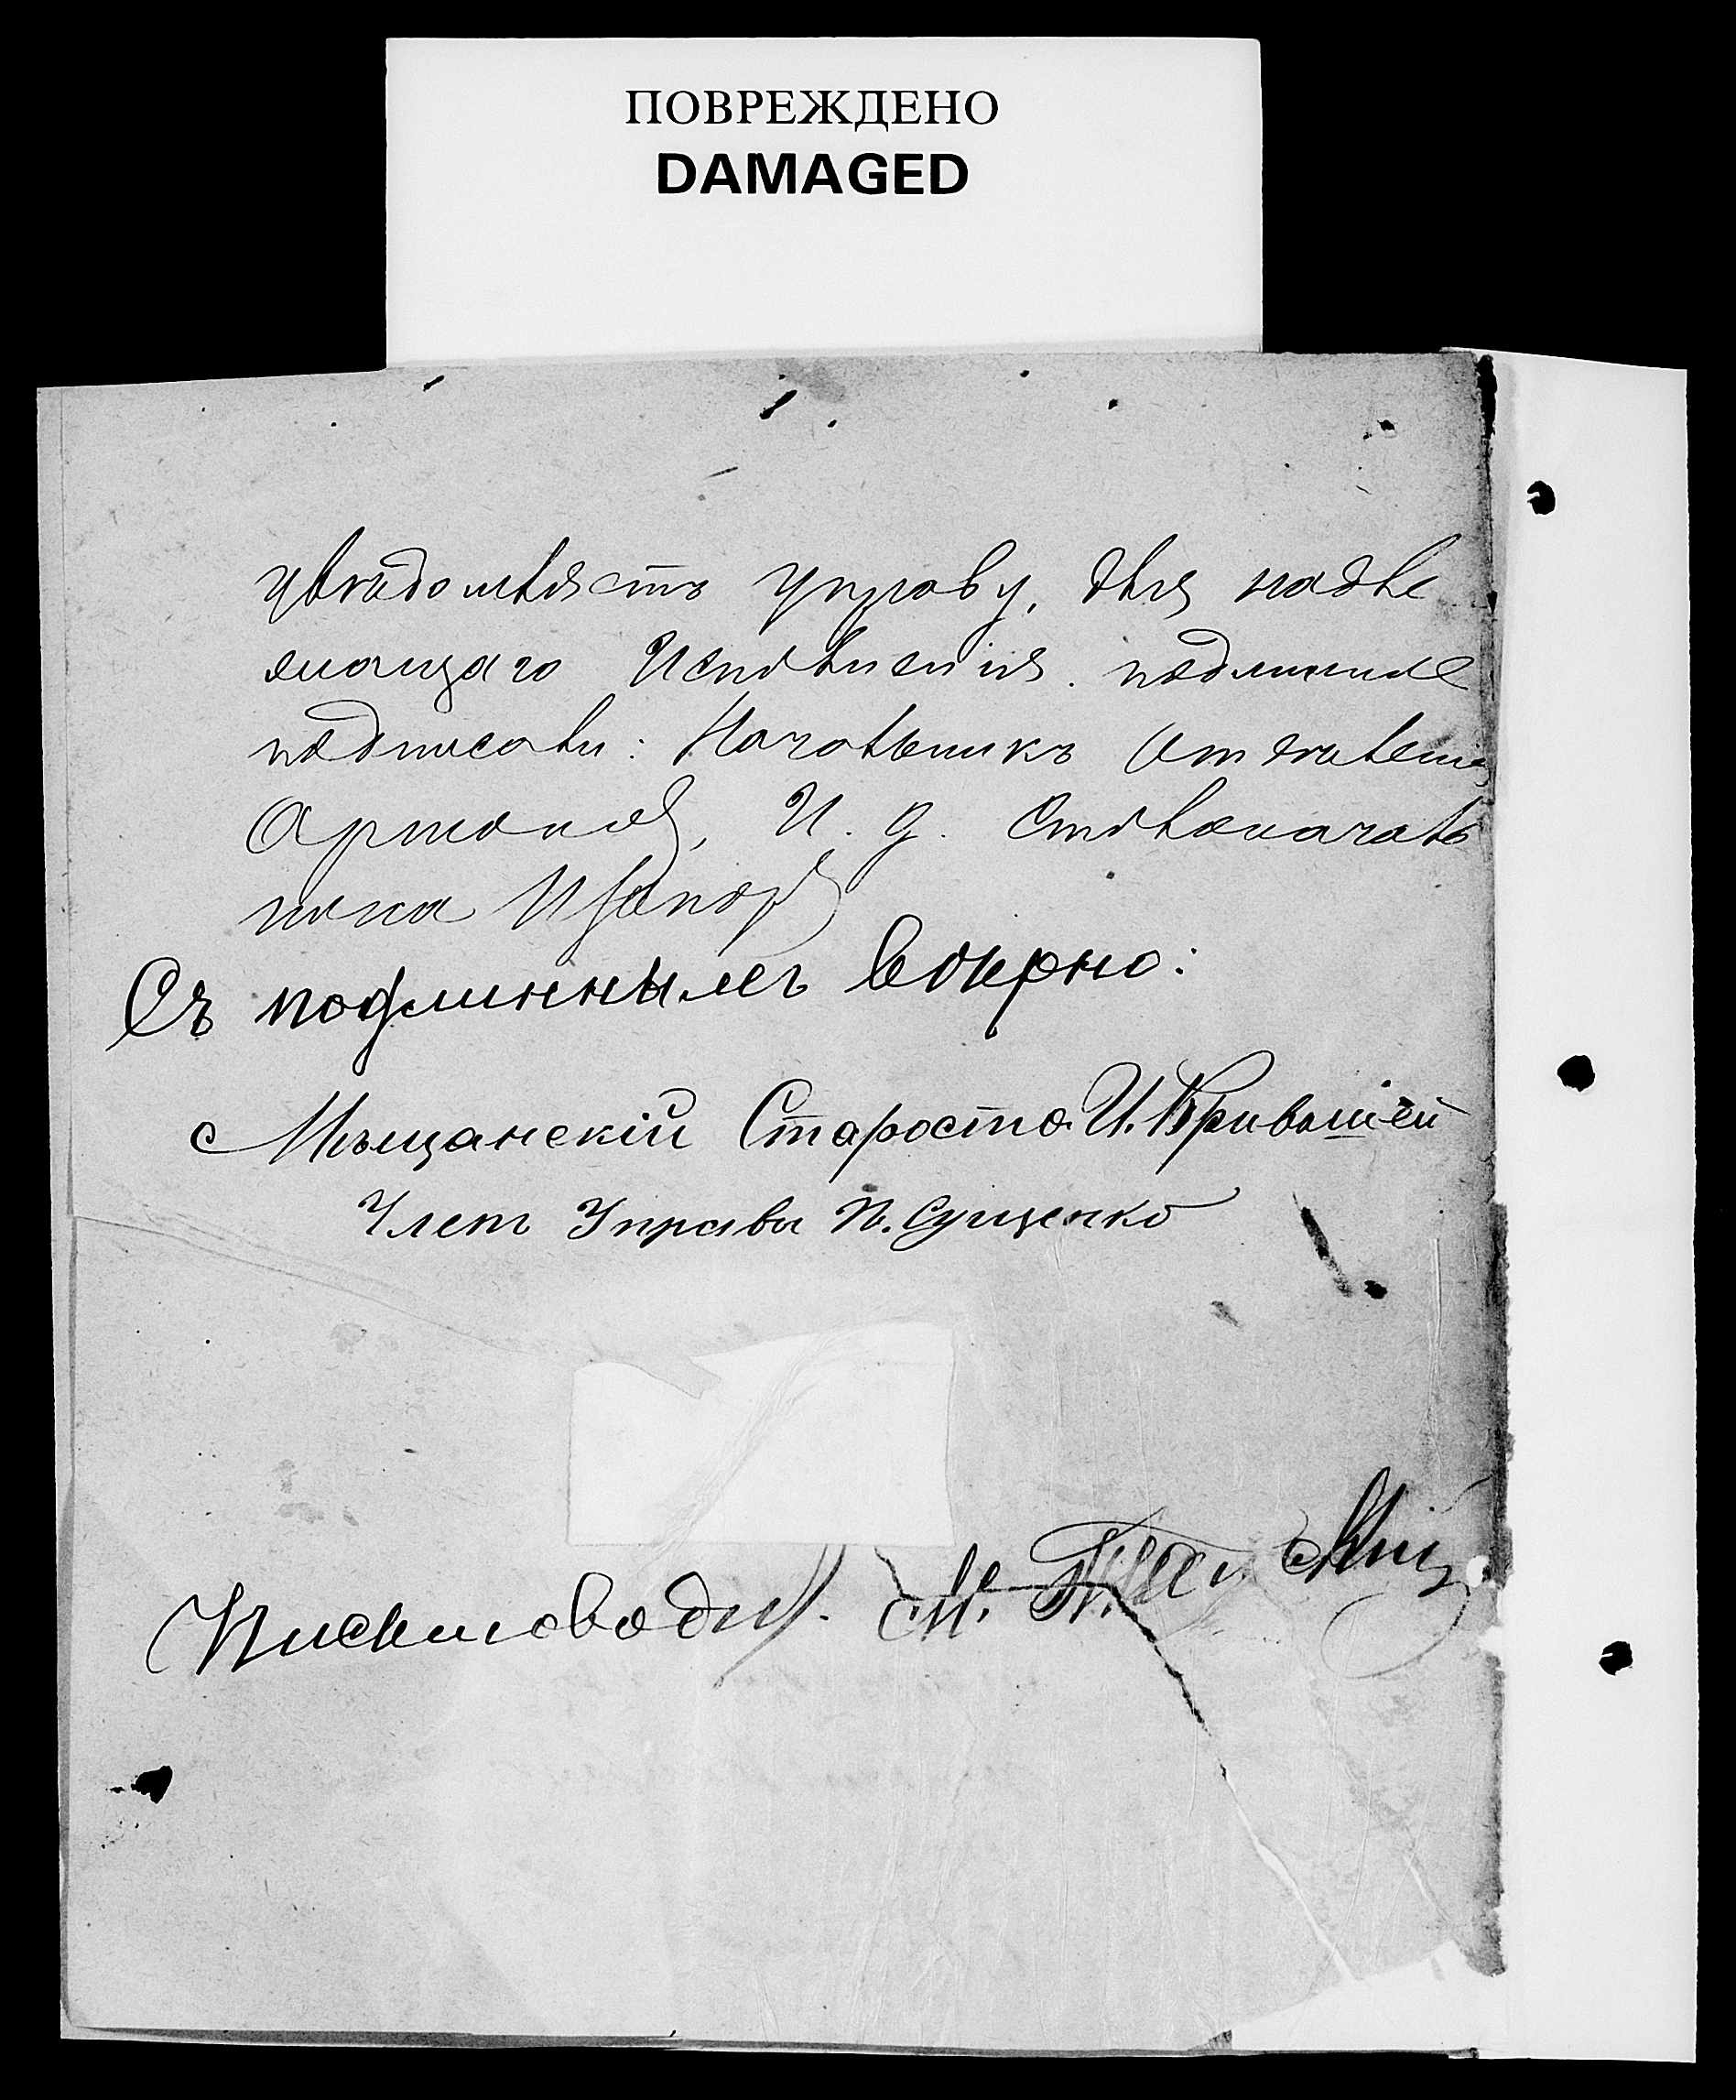 ПОВРЕЖДЕНО
DAMAGED
увѣдомляетъ управу, для надле
жащаго Исполненія. подлинное
подписали: Начальникъ Отдѣленія
И. д. Столоначаль
ника
Съ подлиннымъ вѣрно:
Мѣщанскій Староста И. Кривошей
Членъ Управы П. Сущенко
Письмоводит. М.